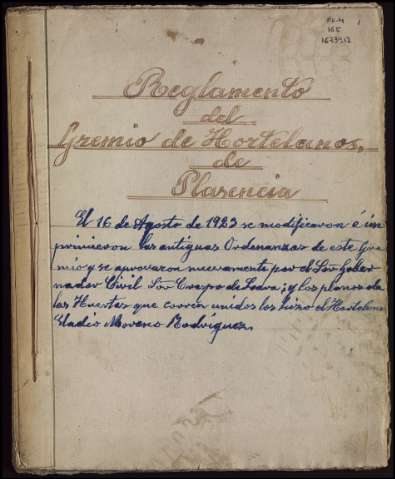 Reglamento
del
Gremio de Hortelanos,
de
Plasencia
El 16 de Agosto de 1923 se modificaron é im
primieron las antiguas Ordenanzas de este Gre
mio y se aprovaron nuevamente por el Sor Gober
nador Civil Sor Crespo de Lara; y los planos de
las Huertas que corren unidos los hizo el Hortelano
Eladio Moreno Rodríguez.